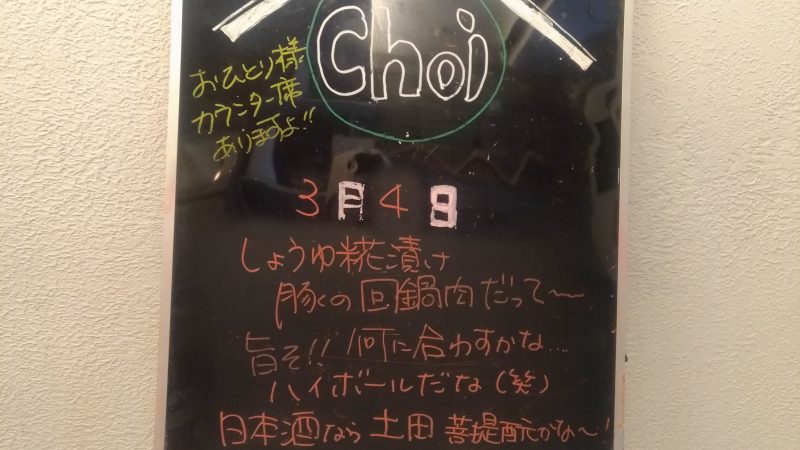 Choi
おひとり様
カウンター席
ありますよ!!
3月4日
しょうゆ糀漬け
豚の回鍋肉だって〜
旨そ!! 何に合わすかな...
ハイボールだな(笑)
日本酒なら 土田 菩提酛かな〜!